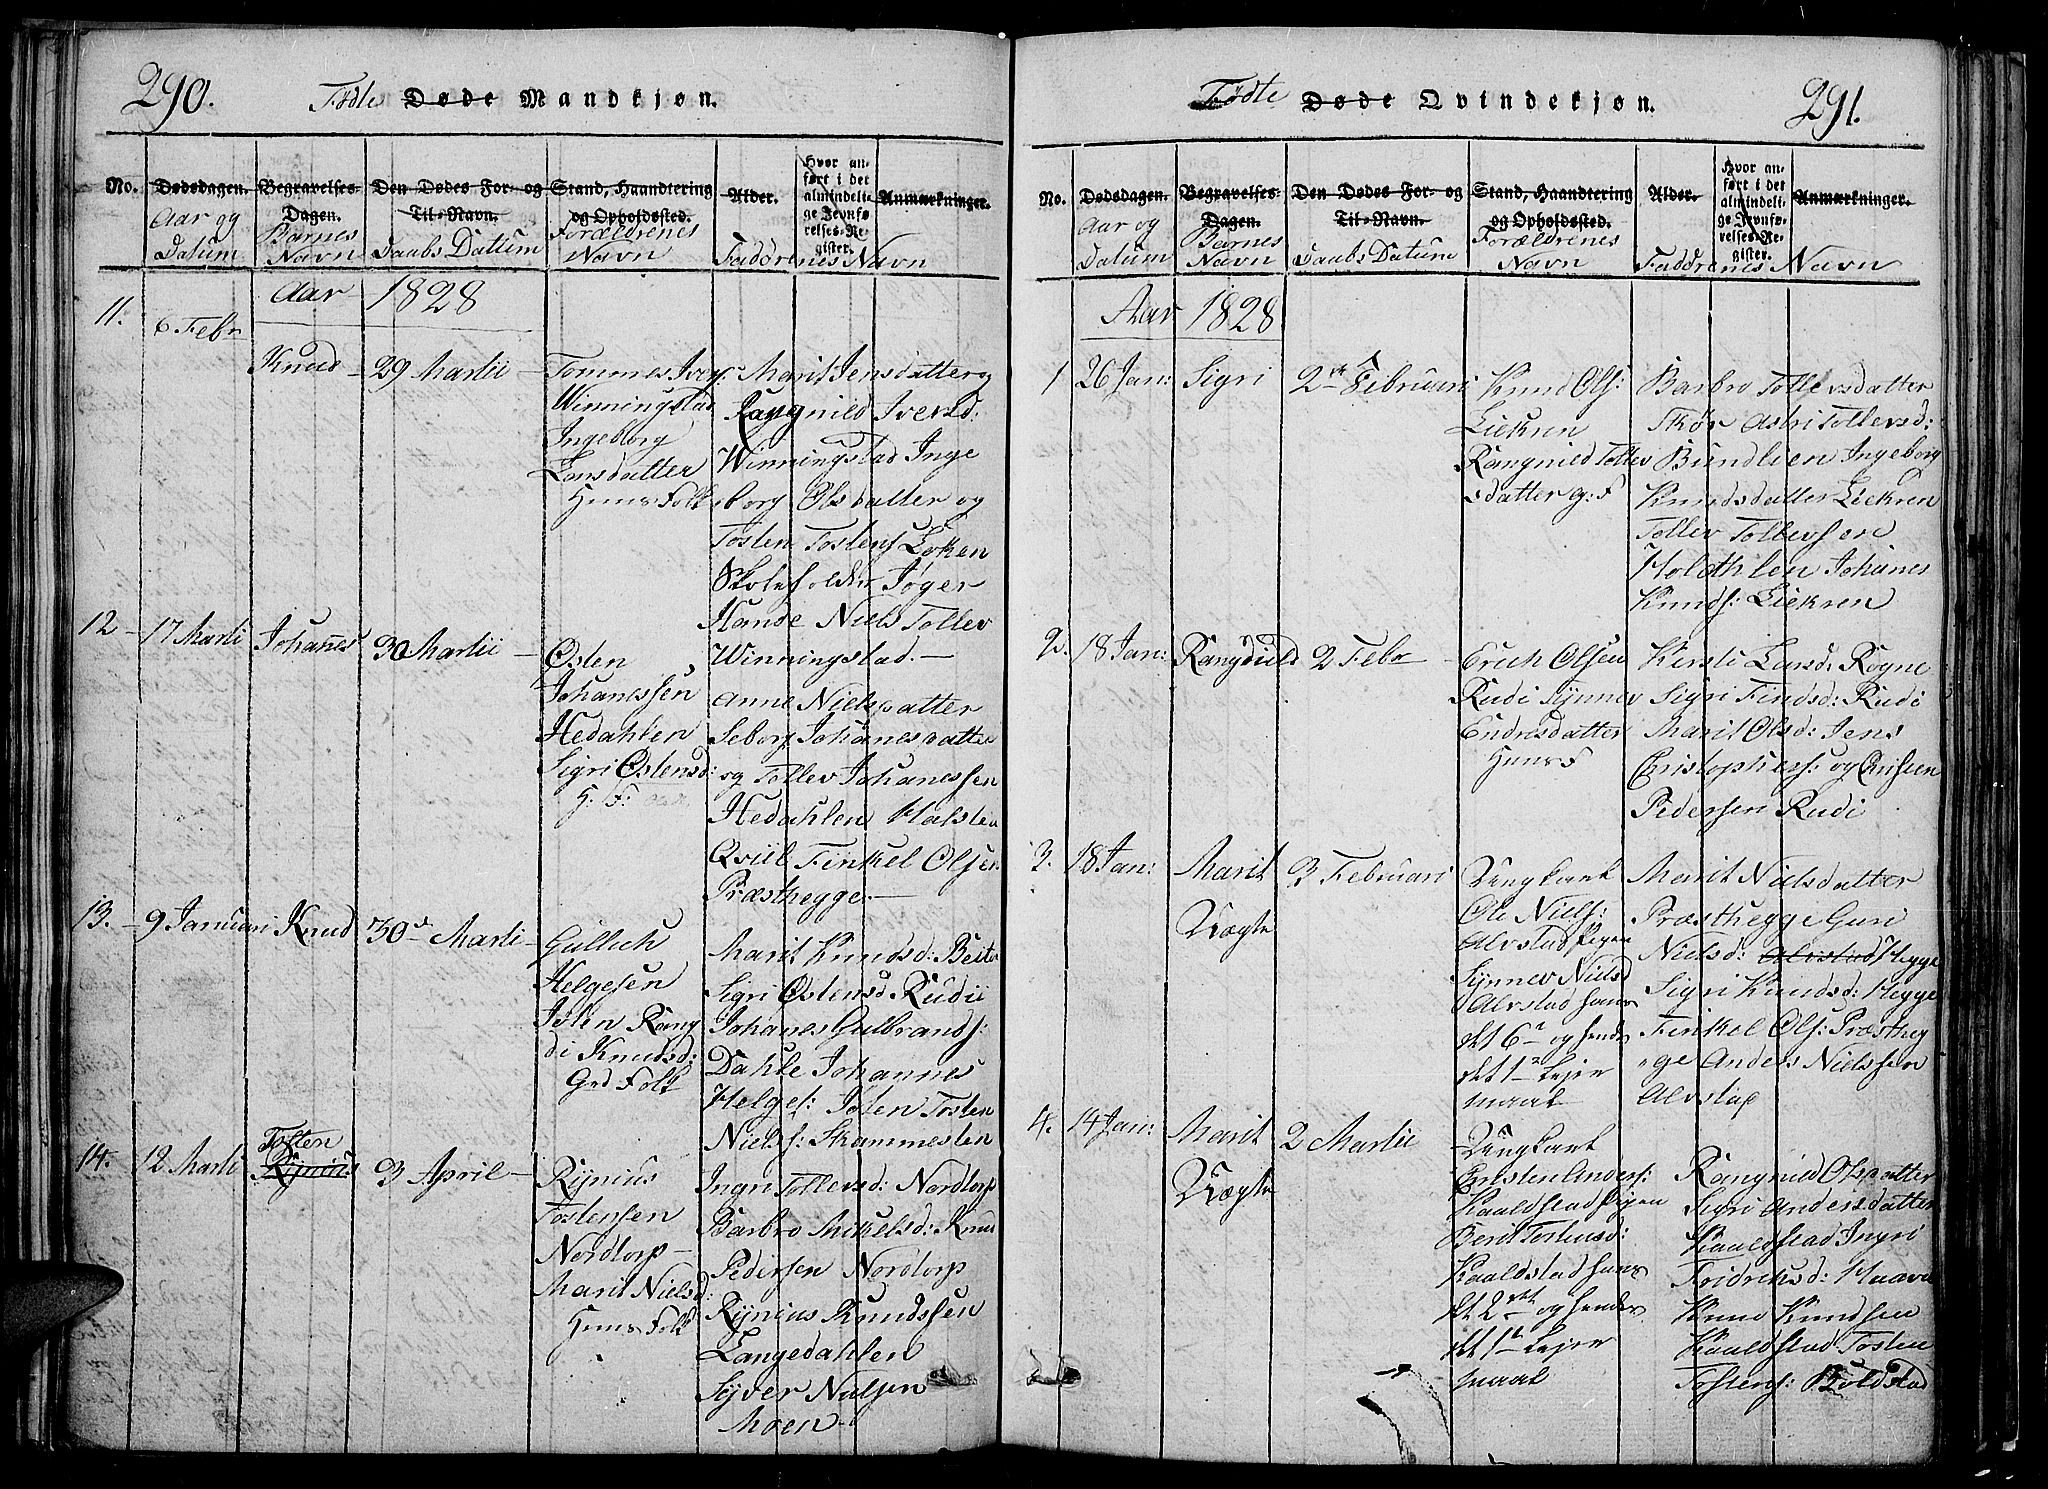 290.
Fødte Døde Mandkjøn.
No.
Dødsdagen.
Aar og
Datum
Begravelses-
Dagen.
Barnes
Navn
Den Dødes For- og
Til-Navn.
Daabs Dattum
Stand, Haandtering
og Opholdssted.
Forældrenes
Navn
Alder.
Hvor an-
ført i det
almindeli-
ge Jevnfø-
relses-Re-
gister.
Anmærkninger.
Faddrenes Navn
Aar 1828
11.
6 Febr
Knud
29 Martii
Tommes Iver:
Winningstad
Ingeborg
Larsdatter
Huus Folk
Marit Jensdatter og
Ragnild Iversd:
Winningstad Inge
borg Olsdatter og
Tosten Tostens Loken
Skoleholder Jøger
Hande Niels Tollev
Winningstad.
12
17 Marti
Johanes
30 Martii
Østen
Johanessen
Hedahlen
Sigri Østensd:
H: F:
Anne Nielsdatter
Seborg Johanesdatter
og Tollev Johanessen
Hedahlen Halsten
Qviil Finkel Olsen
Præsthegge.
13.
9 Januari
Knud
30 Marti
Gullich
Helgesen
Jolen Rang
di Knudsd:
Grd Folk
Marit Knudsd: Beito
Sigri Østensd Rudii
Johanes Gulbrands:
Dahle Johannes
Helges: Jolen Tosten
Niels: Skammesten
14.
12 Marti
Tosten
Rynius
3 April
Rynius
Tostensen
Nordtorp
Marit Nielsd:
Huus Folk
Ingri Tollevsd: Nordtorp
Barbro Mikelsd: Knud
Pedersen Nordtorp
Rynius Knudssen
Langedahlen
Syver Nielsen
Moen
291.
Fødte Døde Qvindekjøn.
No.
Dødsdagen.
Aar og
Datum
Begravelses-
Dagen.
Barnes
Navn
Den Dødes For- og
Til-Navn.
Daabs Datum
Stand, Haandtering
og Opholdssted.
Forældrenes
Navn
Alder.
Hvor an-
ført i det
almindeli-
ge Jevnfø-
relses-Re-
gister.
Anmærkninger.
Faddrenes Navn
Aar 1828
1
26 Jan:
Sigri
2 Februari
Knud Ols:
Liekren
Rangnild Tollev
sdatter g: F
Barbro Tollevsdatter
Skør Astri Tollevsd:
Bundlien Ingeborg
Knudsdatter Liekren
Tollev Tollevsen
Holdthlen Johanes
Knuds: Liekren
2.
18 Jan:
Rangdild
2 Febr
Erich Olsen
Rudi Synnev
Endresdatter
Huus F
Kirsti Larsd: Rogne
Sigri Findsd: Rudi
Marit Olsd: Jens
Cristophers: og
Pedersen Rudi
3.
18 Jan:
Marit
Uægte
3 Februari
Ungkarl
Ole Niels:
Alvstad Pigen
Synnev Nielsd
Alvstad hans
det 6 og hendes
det 1 Leier
maal
Marit Nielsdatter
Præsthegge Guri
Nielsd: Alvstad Hegge
Sigri Knudsd: Hegge
Finkel Ols: Præstheg
ge Anders Nielssen
Alvstad
4.
14 Jan:
Marit
Uægte
2 Martii
Ungkarl
Cristen Anders:
Kaaldstad Pigen
Berit Tostensd:
Kaaldstad hans
det 2 og hendes
det 1 Leier
maal
Rangnild Olsdatter
Sigri Andersdatter
Kaaldstad Ingri
Fridriksd: Haavd
Knud Knudsen
Kaaldstad Tosten
Tostens: Boldstad